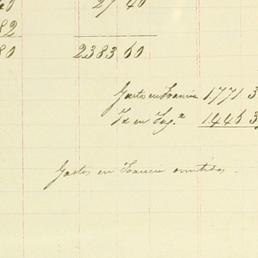 60 27 40
82
80 2383 60
Gastos en Francia 1771 3
Id en Ing.ª 1445 3
Gastos en Francia omitidos.